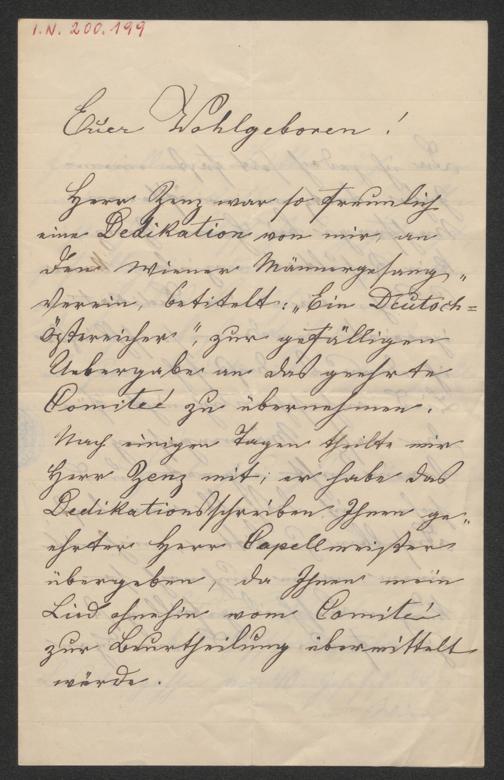 I.N. 200.199
Euer Wohlgeboren!
Herr Zenz war so freundlich
eine Dedikation von mir, an
den Wiener Männergesang„
Verein, betitelt: „Ein Deutsch=
Östereicher", zur gefälligen
Uebergabe an das geehrte
Comiteé zu übernehmen.
Nach einigen Tagen theilte mir
Herr Zenz mit; er habe das
Dedikationsschreiben Ihnen ge„
ehrter Herr Capellmeister
übergeben, da Ihnen mein
Lied ohnehin vom Comiteé
zur Beurtheilung übermittelt
würde.